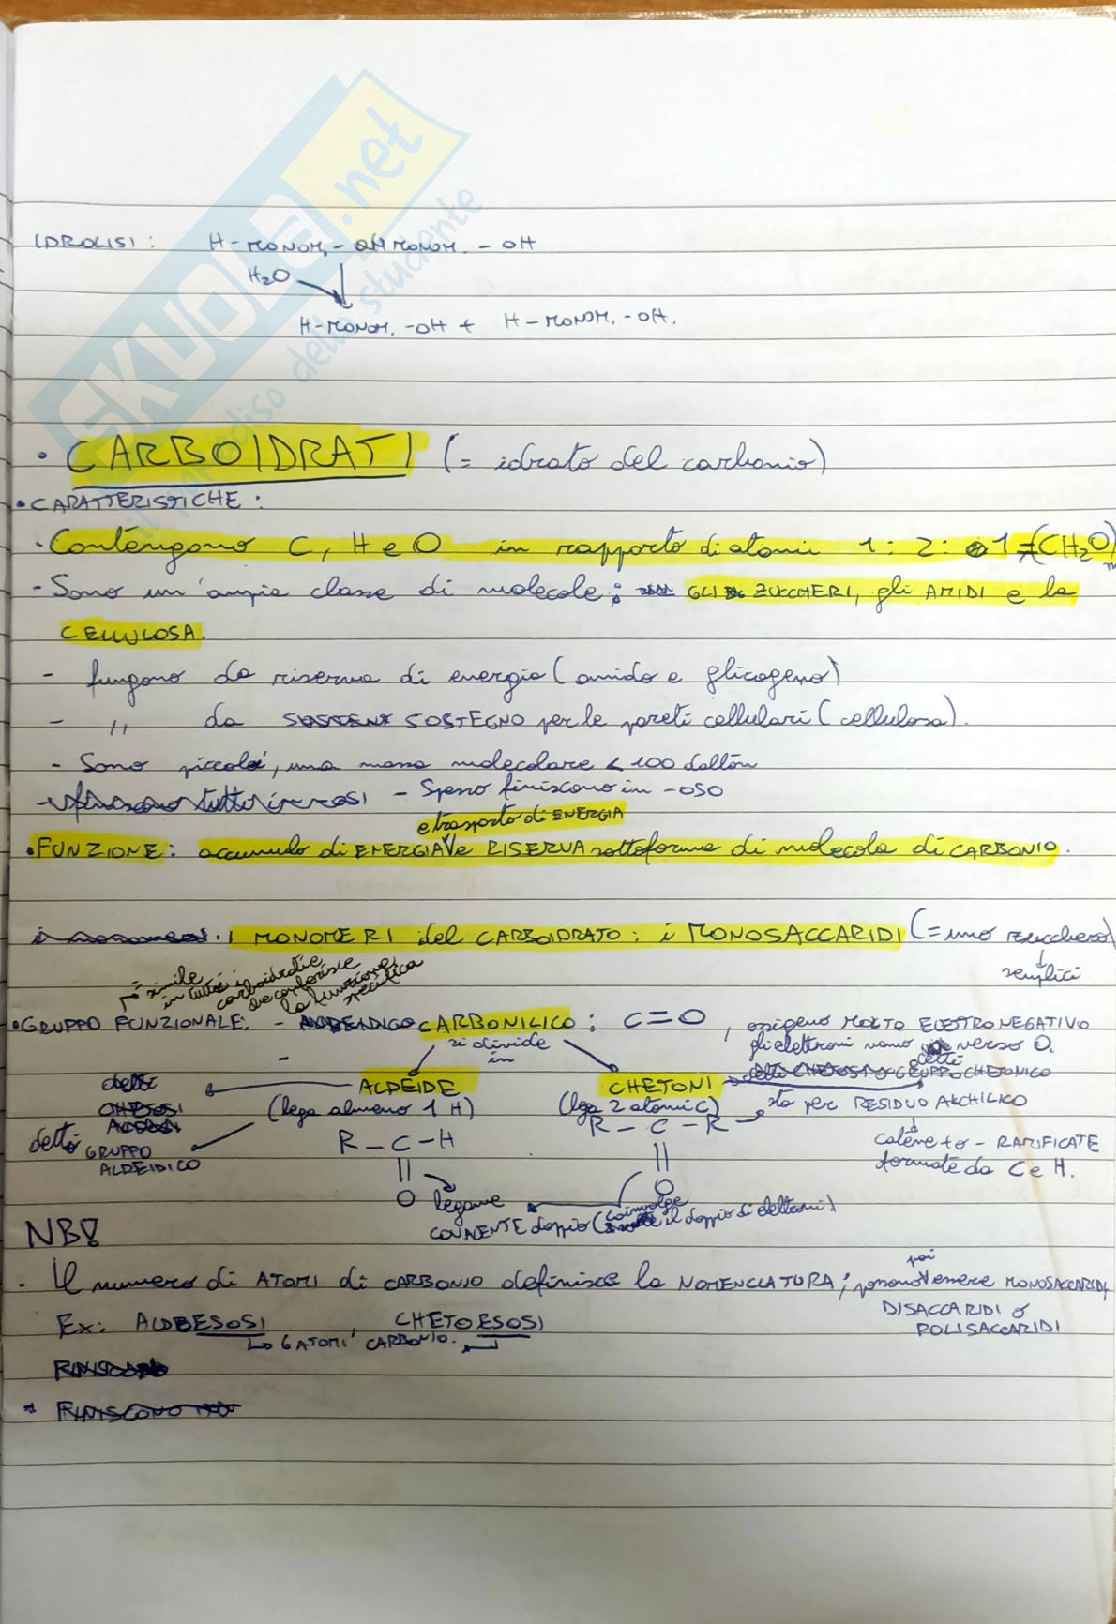 SKUOLA.net
paradiso dello studente
IDROLISI: H-MONOM.-OHMONOM.-OH
H2O
H-MONOM.-OH + H-MONOM.-OH.
• CARBOIDRATI (= idrato del carbonio)
• CARATTERISTICHE:
- Contengono C, H e O in rapporto di atomi 1:2:1=(CH2O)n
- Sono un'ampia classe di molecole: GLI ZUCCHERI, gli AMIDI e la
CELLULOSA.
- fungono da riserva di energia (amido e glicogeno)
- ,, da SOSTEGNO per le pareti cellulari (cellulosa).
- Sono piccole, una massa molecolare < 100 dalton
- Spesso finiscono in -OSO
e trasporto di ENERGIA
• FUNZIONE: accumulo di ENERGIA e RISERVA sottoforma di molecola di CARBONIO.
. I MONOMERI del CARBOIDRATO: i MONOSACCARIDI (= uno zucchero)
semplici
è simile
in tutti i
carboidrati e
che conferisce
la funzione
specifica
• GRUPPO FUNZIONALE: - CARBONILICO: C=O , ossigeno MOLTO ELETTRONEGATIVO
si divide
in
gli elettroni vanno verso O.
detti
GRUPPO CHETONICO
ALDEIDE CHETONI
(lega almeno 1 H) (lega 2 atomi C)
sta per RESIDUO ALCHILICO
detti GRUPPO
ALDEIDICO
R-C-H R-C-R
catene + o - RAMIFICATE
formate da C e H.
O O
legame
COVALENTE doppio (coinvolge il doppio di elettroni)
NB!
. Il numero di ATOMI di CARBONIO definisce la NOMENCLATURA; poi possono essere MONOSACCARIDI,
DISACCARIDI o
POLISACCARIDI
Ex: ALDOESOSI , CHETOESOSI
6 ATOMI CARBONIO.